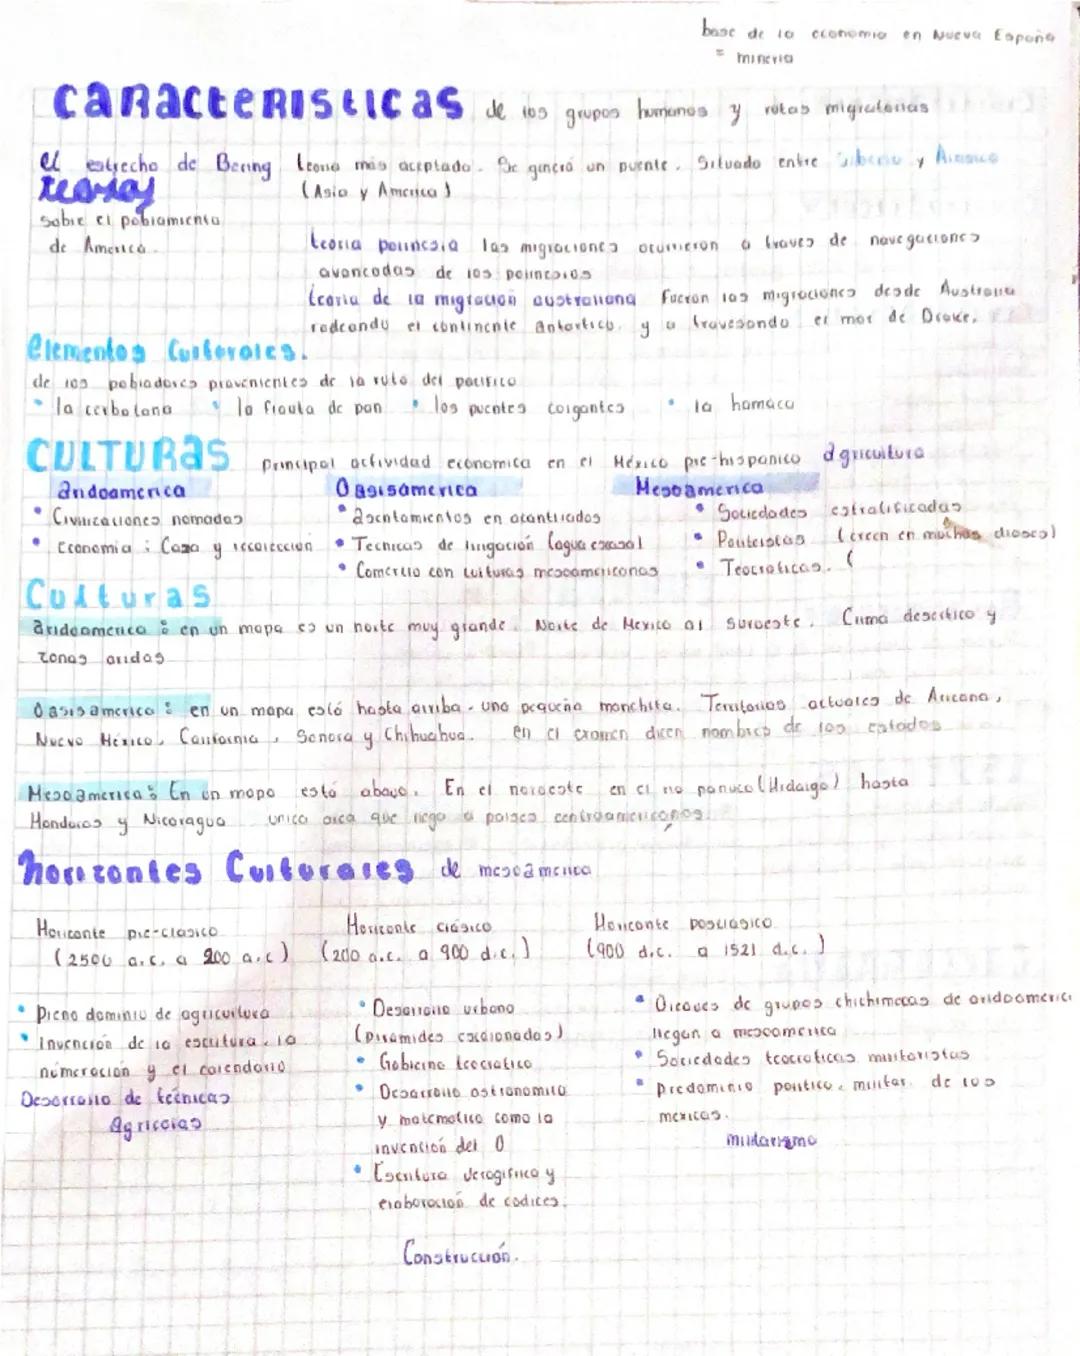 base de la economia en Nueva España
= mineria
caracteristicas de los grupos humanos y rutas migratorias
el estrecho de Bering teoria más aceptada. Se generó un puente. Situado entre Siberia y Alaska
teorias (Asia y America)
sobre el poblamiento
de America.
teoria polinesia las migraciones ocurrieron a traves de navegaciones
avanzadas de los polinesios
teoria de la migracion australiana Fueron las migraciones desde Australia
rodeando el continente Antartico, y a travesando el mar de Drake.
elementos Culturales.
de los pobladores provenientes de la ruta del pacifico
• la cerbatana • la flauta de pan • los puentes colgantes • la hamaca
CULTURas Principal actividad economica en el México pre-hispanico agricultura
aridoamerica Oasisamerica Mesoamerica
• Civilizaciones nomadas • asentamientos en acantilados • Sociedades estratificadas
• Economia : Caza y recoleccion • Tecnicas de irrigación (agua escasa) • Politeistas (creen en muchos dioses)
• Comercio con culturas mesoamericanas • Teocraticas. (
Culturas
aridoamerica : en un mapa es un norte muy grande. Norte de Mexico al suroeste. Clima desertico y
zonas aridas
Oasisamerica : en un mapa está hasta arriba. una pequeña manchita. Territorios actuales de Arizona,
Nuevo México, California, Sonora y Chihuahua. en el examen dicen nombres de los estados
Mesoamerica : En un mapa está abajo. En el noroeste en el rio panuco (Hidalgo) hasta
Honduras y Nicaragua unica area que llego a paises centroamericanos.
horizontes Culturales de mesoamerica
Horizonte pre-clasico Horizonte clásico Horizonte posclasico
(2500 a.c. a 200 a.c) (200 a.c. a 900 d.c.) (900 d.c. a 1521 d.c.)
• Pleno dominio de agricultura • Desarrollo urbano • Oleaves de grupos chichimecas de aridoameric
• Invención de la escritura, la (piramides escalonadas) llegan a mesoamerica
númeración y el calendario • Gobierno teocratico • Sociedades teocraticas militaristas
Desarrollo de tecnicas • Desarrollo astronomico • predominio politico, militar de los
Agricolas y matematico como la mexicas.
invención del 0 militarismo
• Escritura Jeroglifica y
elaboración de codices.
Construcción.